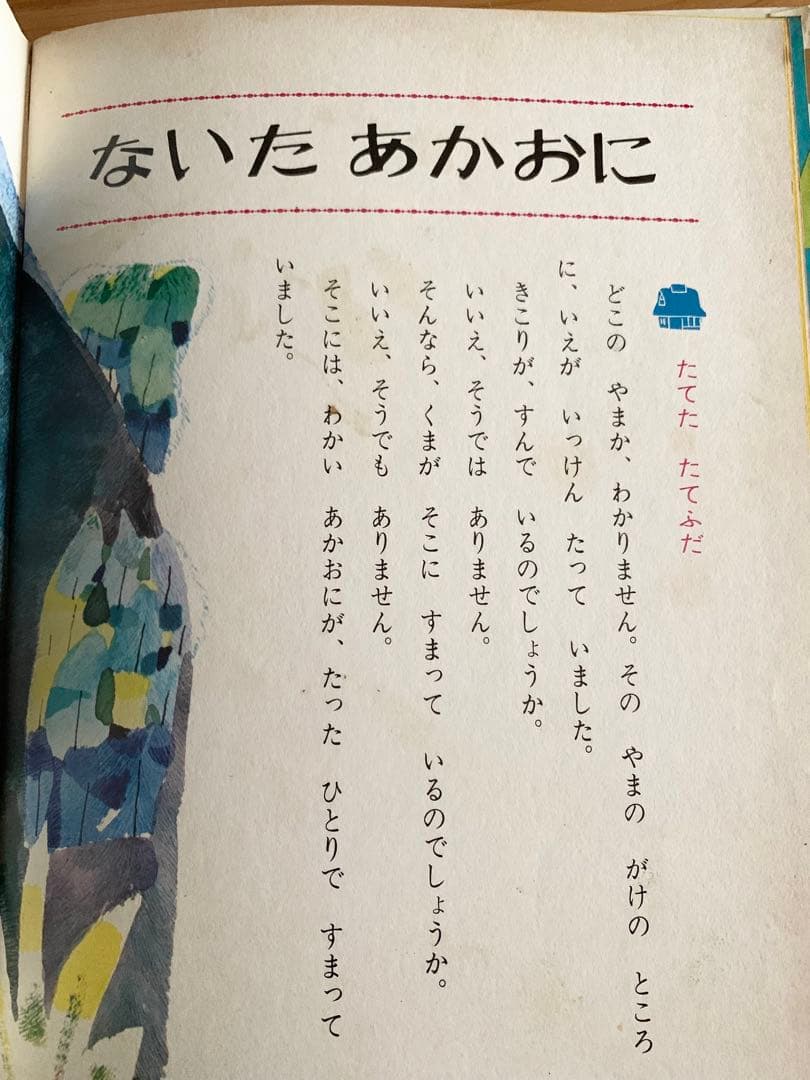 ないた あかおに
たてた たてふだ
どこの やまか、わかりません。その やまの がけの ところ
に、いえが いっけん たって いました。
きこりが、すんで いるのでしょうか。
いいえ、そうでは ありません。
そんなら、くまが そこに すまって いるのでしょうか。
いいえ、そうでも ありません。
そこには、わかい あかおにが、たった ひとりで すまって
いました。